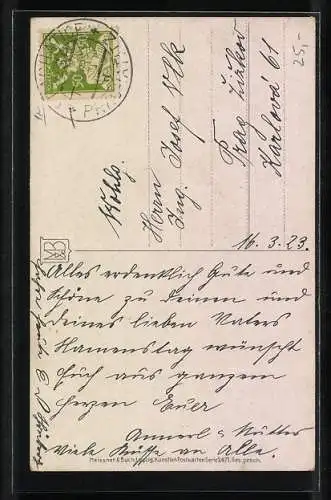 25,-
Wohlg.
Herrn
Ing. Josef Vlk
Prag Žižkov
Karlova 61
16.3.23.
Alles erdenklich Gute und
Schöne zu deinem und
deines lieben Vaters
Namenstag wünscht
Euch aus ganzem
Herzen Euer
Annerl u. Mutter
Viele Küsse an Alle.
Meissner & Buch, Leipzig Künstler-Postkarten Serie 2671. Ges. gesch.